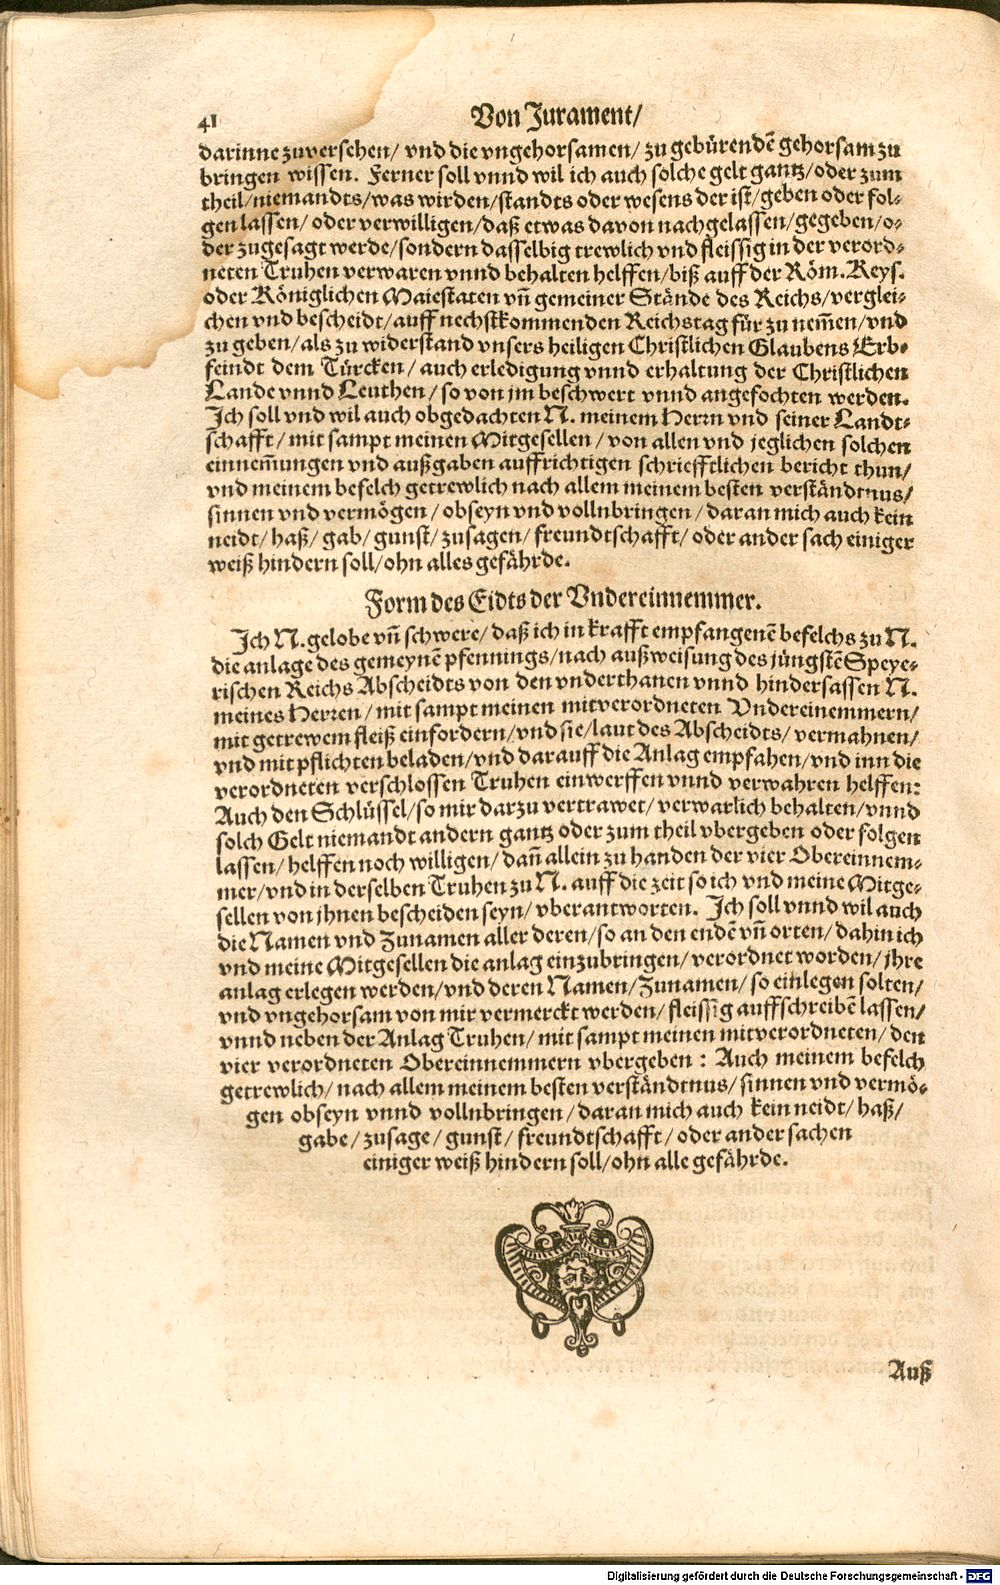 41
Von Jurament/
darinne zuversehen/ vnd die vngehorsamen/ zu gebürendẽ gehorsam zu
bringen wissen. Ferner soll vnnd wil ich auch solche gelt gantz/oder zum
theil/niemandts/was wirden/standts oder wesens der ist/geben oder fol-
gen lassen/ oder verwilligen/daß etwas davon nachgelassen/gegeben/o-
der zugesagt werde/sondern dasselbig trewlich vnd fleissig in der verord-
neten Truhen verwaren vnnd behalten helffen/biß auff der Röm. Keys.
oder Königlichen Maiestaten vñ gemeiner Stände des Reichs/verglei-
chen vnd bescheidt/auff nechstkommenden Reichstag für zu nem̃en/vnd
zu geben/als zu widerstand vnsers heiligen Christlichen Glaubens Erb-
feindt dem Türcken/ auch erledigung vnnd erhaltung der Christlichen
Lande vnnd Leuthen/ so von jm beschwert vnnd angefochten werden.
Ich soll vnd wil auch obgedachten N. meinem Herrn vnd seiner Landt-
schafft/ mit sampt meinen Mitgesellen/ von allen vnd jeglichen solchen
einnem̃ungen vnd außgaben auffrichtigen schriefftlichen bericht thun/
vnd meinem befelch getrewlich nach allem meinem besten verständtnus/
sinnen vnd vermögen/ obseyn vnd vollnbringen/ daran mich auch kein
neidt/ haß/ gab/ gunst/ zusagen/ freundtschafft/ oder ander sach einiger
weiß hindern soll/ohn alles gefährde.
Form des Eidts der Vndereinnemmer.
Ich N. gelobe vñ schwere/ daß ich in krafft empfangenẽ befelchs zu N.
die anlage des gemeynẽ pfennings/nach außweisung des jüngstẽ Speye-
rischen Reichs Abscheidts von den vnderthanen vnnd hindersassen N.
meines Herren/ mit sampt meinen mitverordneten Vndereinemmern/
mit getrewem fleiß einfordern/vnd sie/laut des Abscheidts/ vermahnen/
vnd mit pflichten beladen/vnd darauff die Anlag empfahen/vnd inn die
verordneten verschlossen Truhen einwerffen vnnd verwahren helffen:
Auch den Schlüssel/so mir darzu vertrawet/ verwarlich behalten/vnnd
solch Gelt niemandt andern gantz oder zum theil vbergeben oder folgen
lassen/ helffen noch willigen/ dañ allein zu handen der vier Obereinnem-
mer/vnd in derselben Truhen zu N. auff die zeit so ich vnd meine Mitge-
sellen von jhnen bescheiden seyn/ vberantworten. Ich soll vnnd wil auch
die Namen vnd Zunamen aller deren/so an den endẽ vñ orten/ dahin ich
vnd meine Mitgesellen die anlag einzubringen/ verordnet worden/ jhre
anlag erlegen werden/vnd deren Namen/Zunamen/ so einlegen solten/
vnd vngehorsam von mir vermerckt werden/ fleissig auffschreibẽ lassen/
vnnd neben der Anlag Truhen/ mit sampt meinen mitverordneten/ den
vier verordneten Obereinnemmern vbergeben: Auch meinem befelch
getrewlich/ nach allem meinem besten verständtnus/ sinnen vnd vermö-
gen obseyn vnnd vollnbringen/ daran mich auch kein neidt/ haß/
gabe/ zusage/ gunst/ freundtschafft/ oder ander sachen
einiger weiß hindern soll/ohn alle gefährde.
Auß
Digitalisierung gefördert durch die Deutsche Forschungsgemeinschaft - DFG